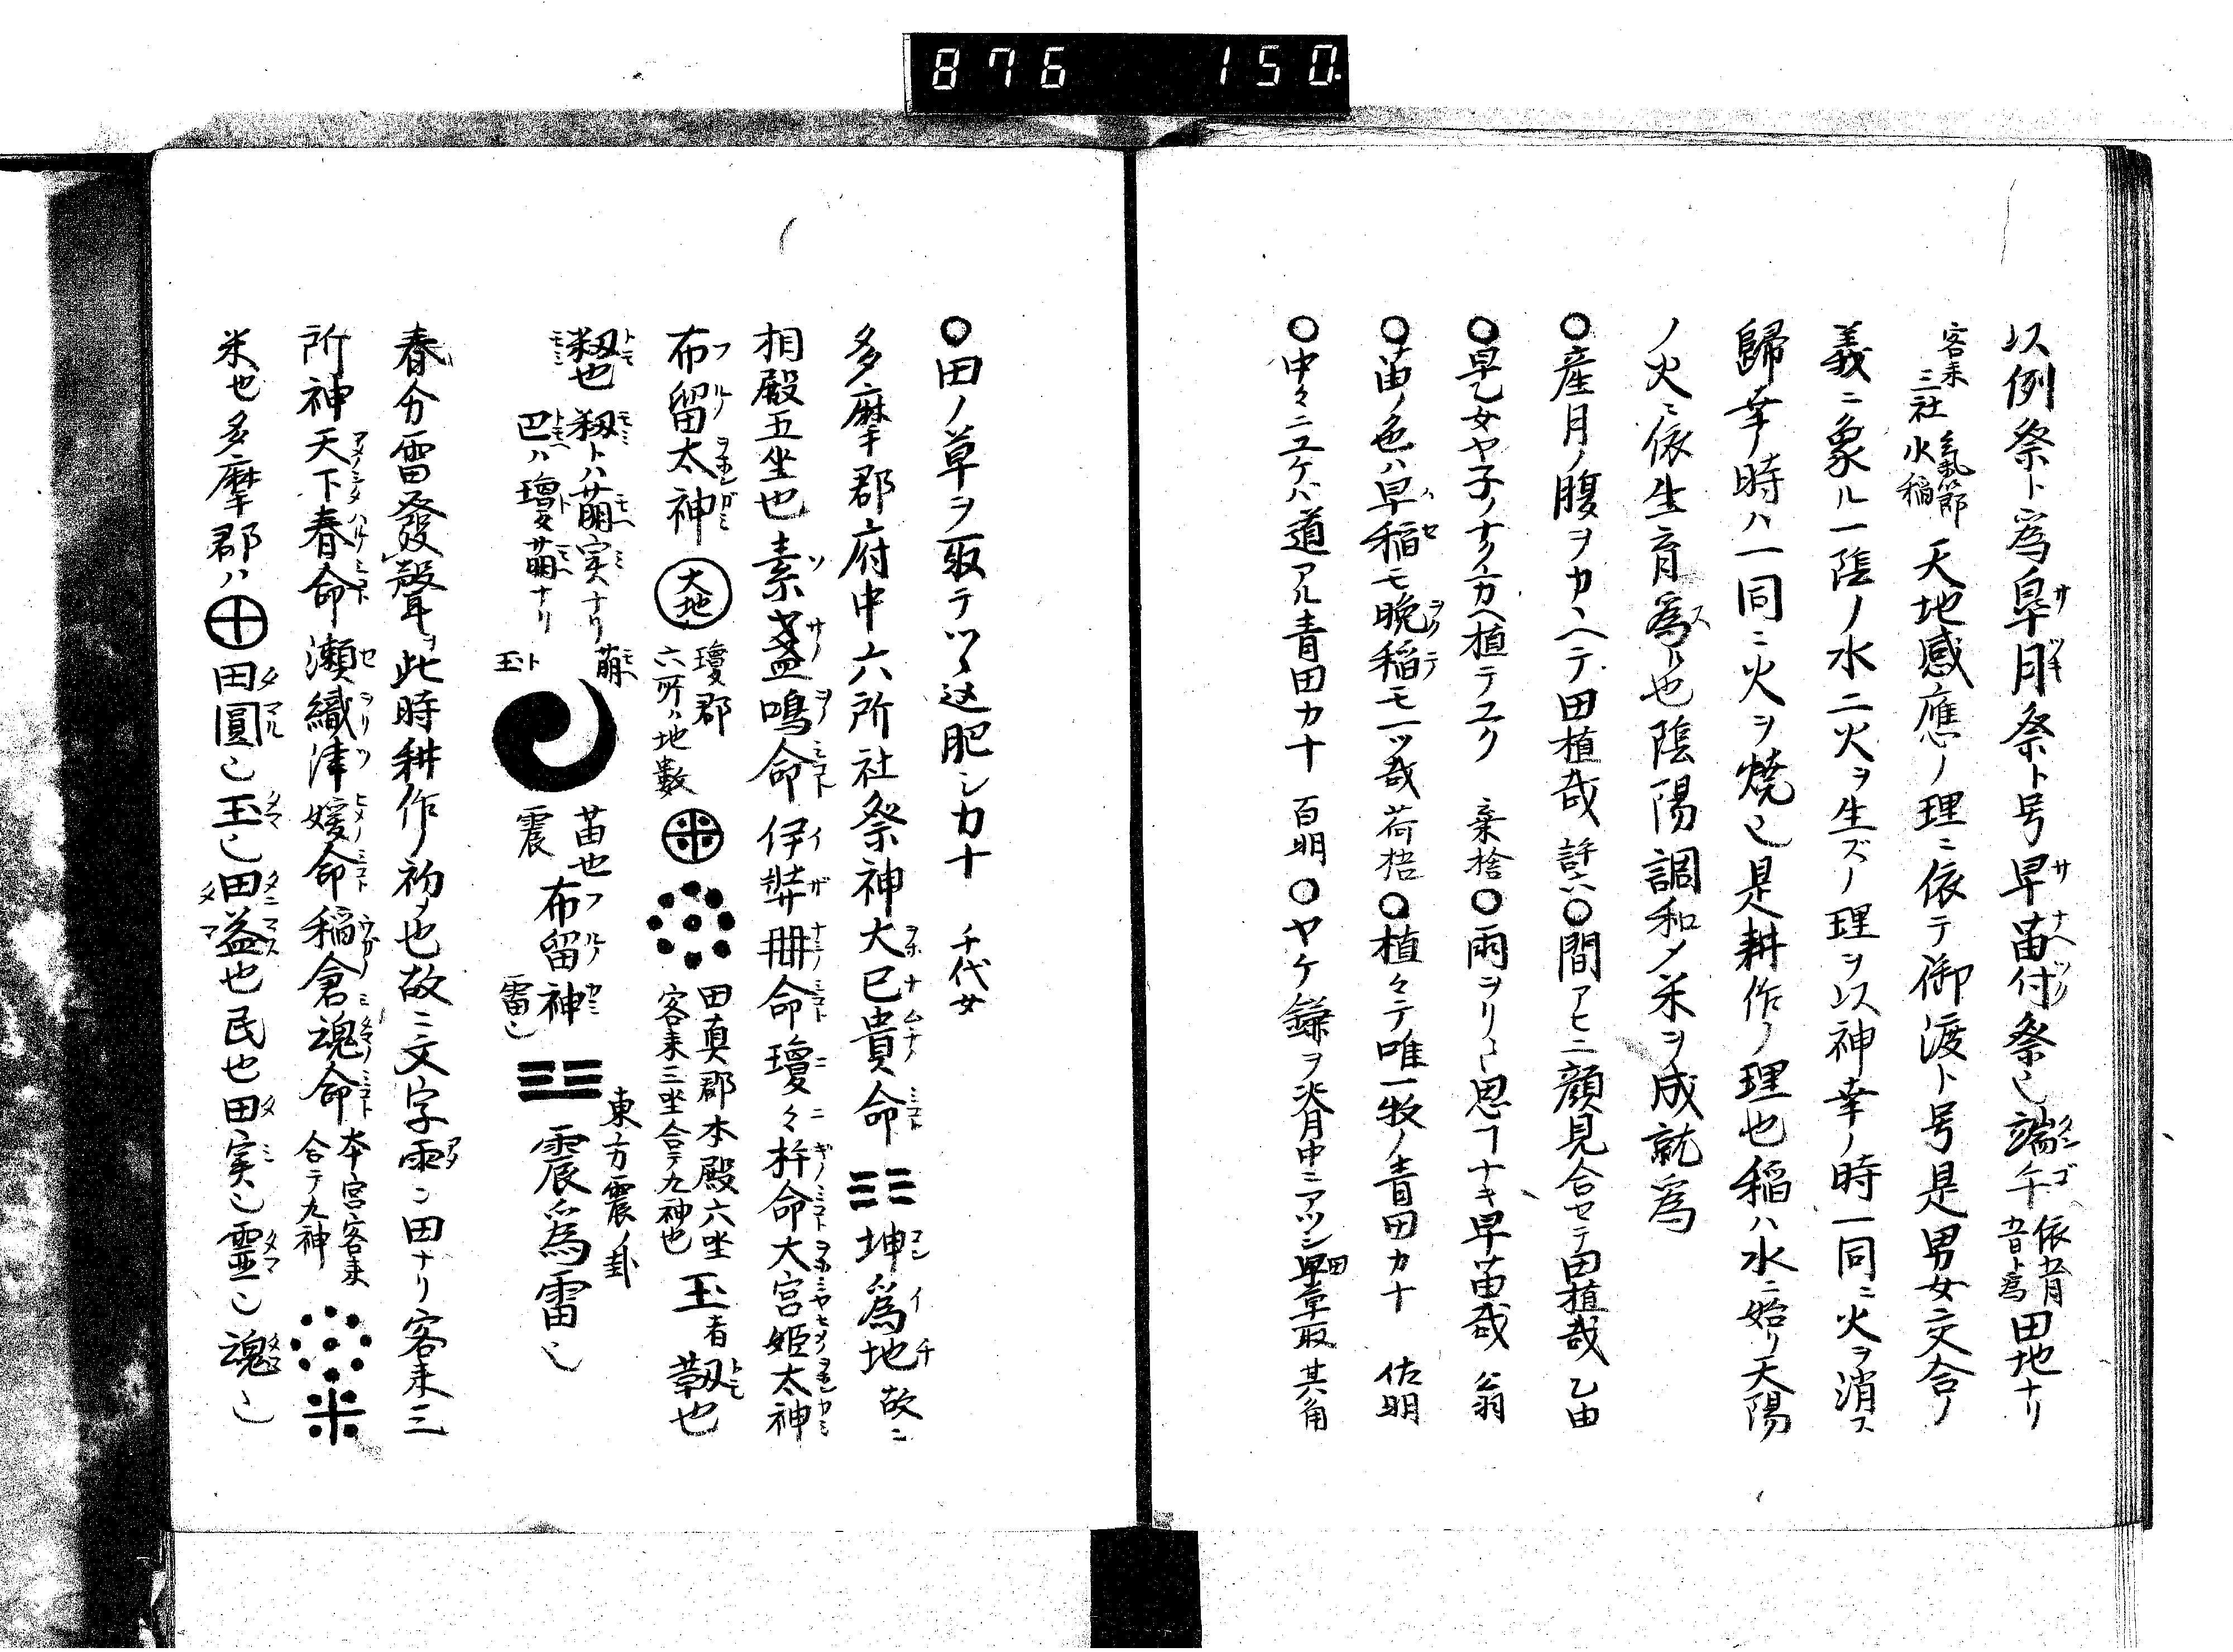 876 150
以例祭ト為皐月祭ト号早苗付祭也端午依五月五日ト為田地ナリ
客来三社氣節水稲天地感應ノ理ニ依テ御渡ト号是男女交合ノ
義ニ象ル一陰ノ水二火ヲ生ズノ理ヲ以神幸ノ時一同ニ火ヲ消ス
歸幸ノ時ハ一同ニ火ヲ燒也是耕作ノ理也稲ハ水ニ始リ天陽
ノ火ニ依生育為也陰陽調和メ米ヲ成就為
○産月ノ腹ヲカヽヘテ田植哉 許六○間アヒニ顔見合セテ田植哉 乙由
○早乙女ヤ子ノナク方ヘ植テユク 棄捨○雨ヲリト思フナキ早苗哉 翁
○苗ノ色ハ早稲モ晩稲モ一ツ哉 荷梧○植々テ唯一牧ノ青田カナ 佐明
○中々ニユケバ道アル青田カナ 百明○ヤケ鎌ヲ背中ニアツシ田草取 其角
○田ノ草ヲ取テツヽ込肥シカナ 千代女
多摩郡府中六所社祭神大巳貴命☷坤為地故ニ
相殿五坐也素盞鳴命伊弉冊命瓊々杵命大宮姫太神
布留太神 大地 瓊郡六所ハ地数 田真郡本殿六坐客来三坐合テ九神也 玉者 靱也
籾也 籾トハ萌実ナリ 巴ハ瓊萌ナリ 萌 玉 苗也 震 布留神 雷也 ☳ 東方震ノ卦 震為雷也
春分雷發聲ヲ此時耕作ノ初ノ也故ニ文字雨ニ田ナリ客来三
所神天下春命瀬織津媛命稲倉魂命 本宮客来合テ九神 米
米也多摩郡ハ田圓也玉也田益也民也田実也靈也魂也